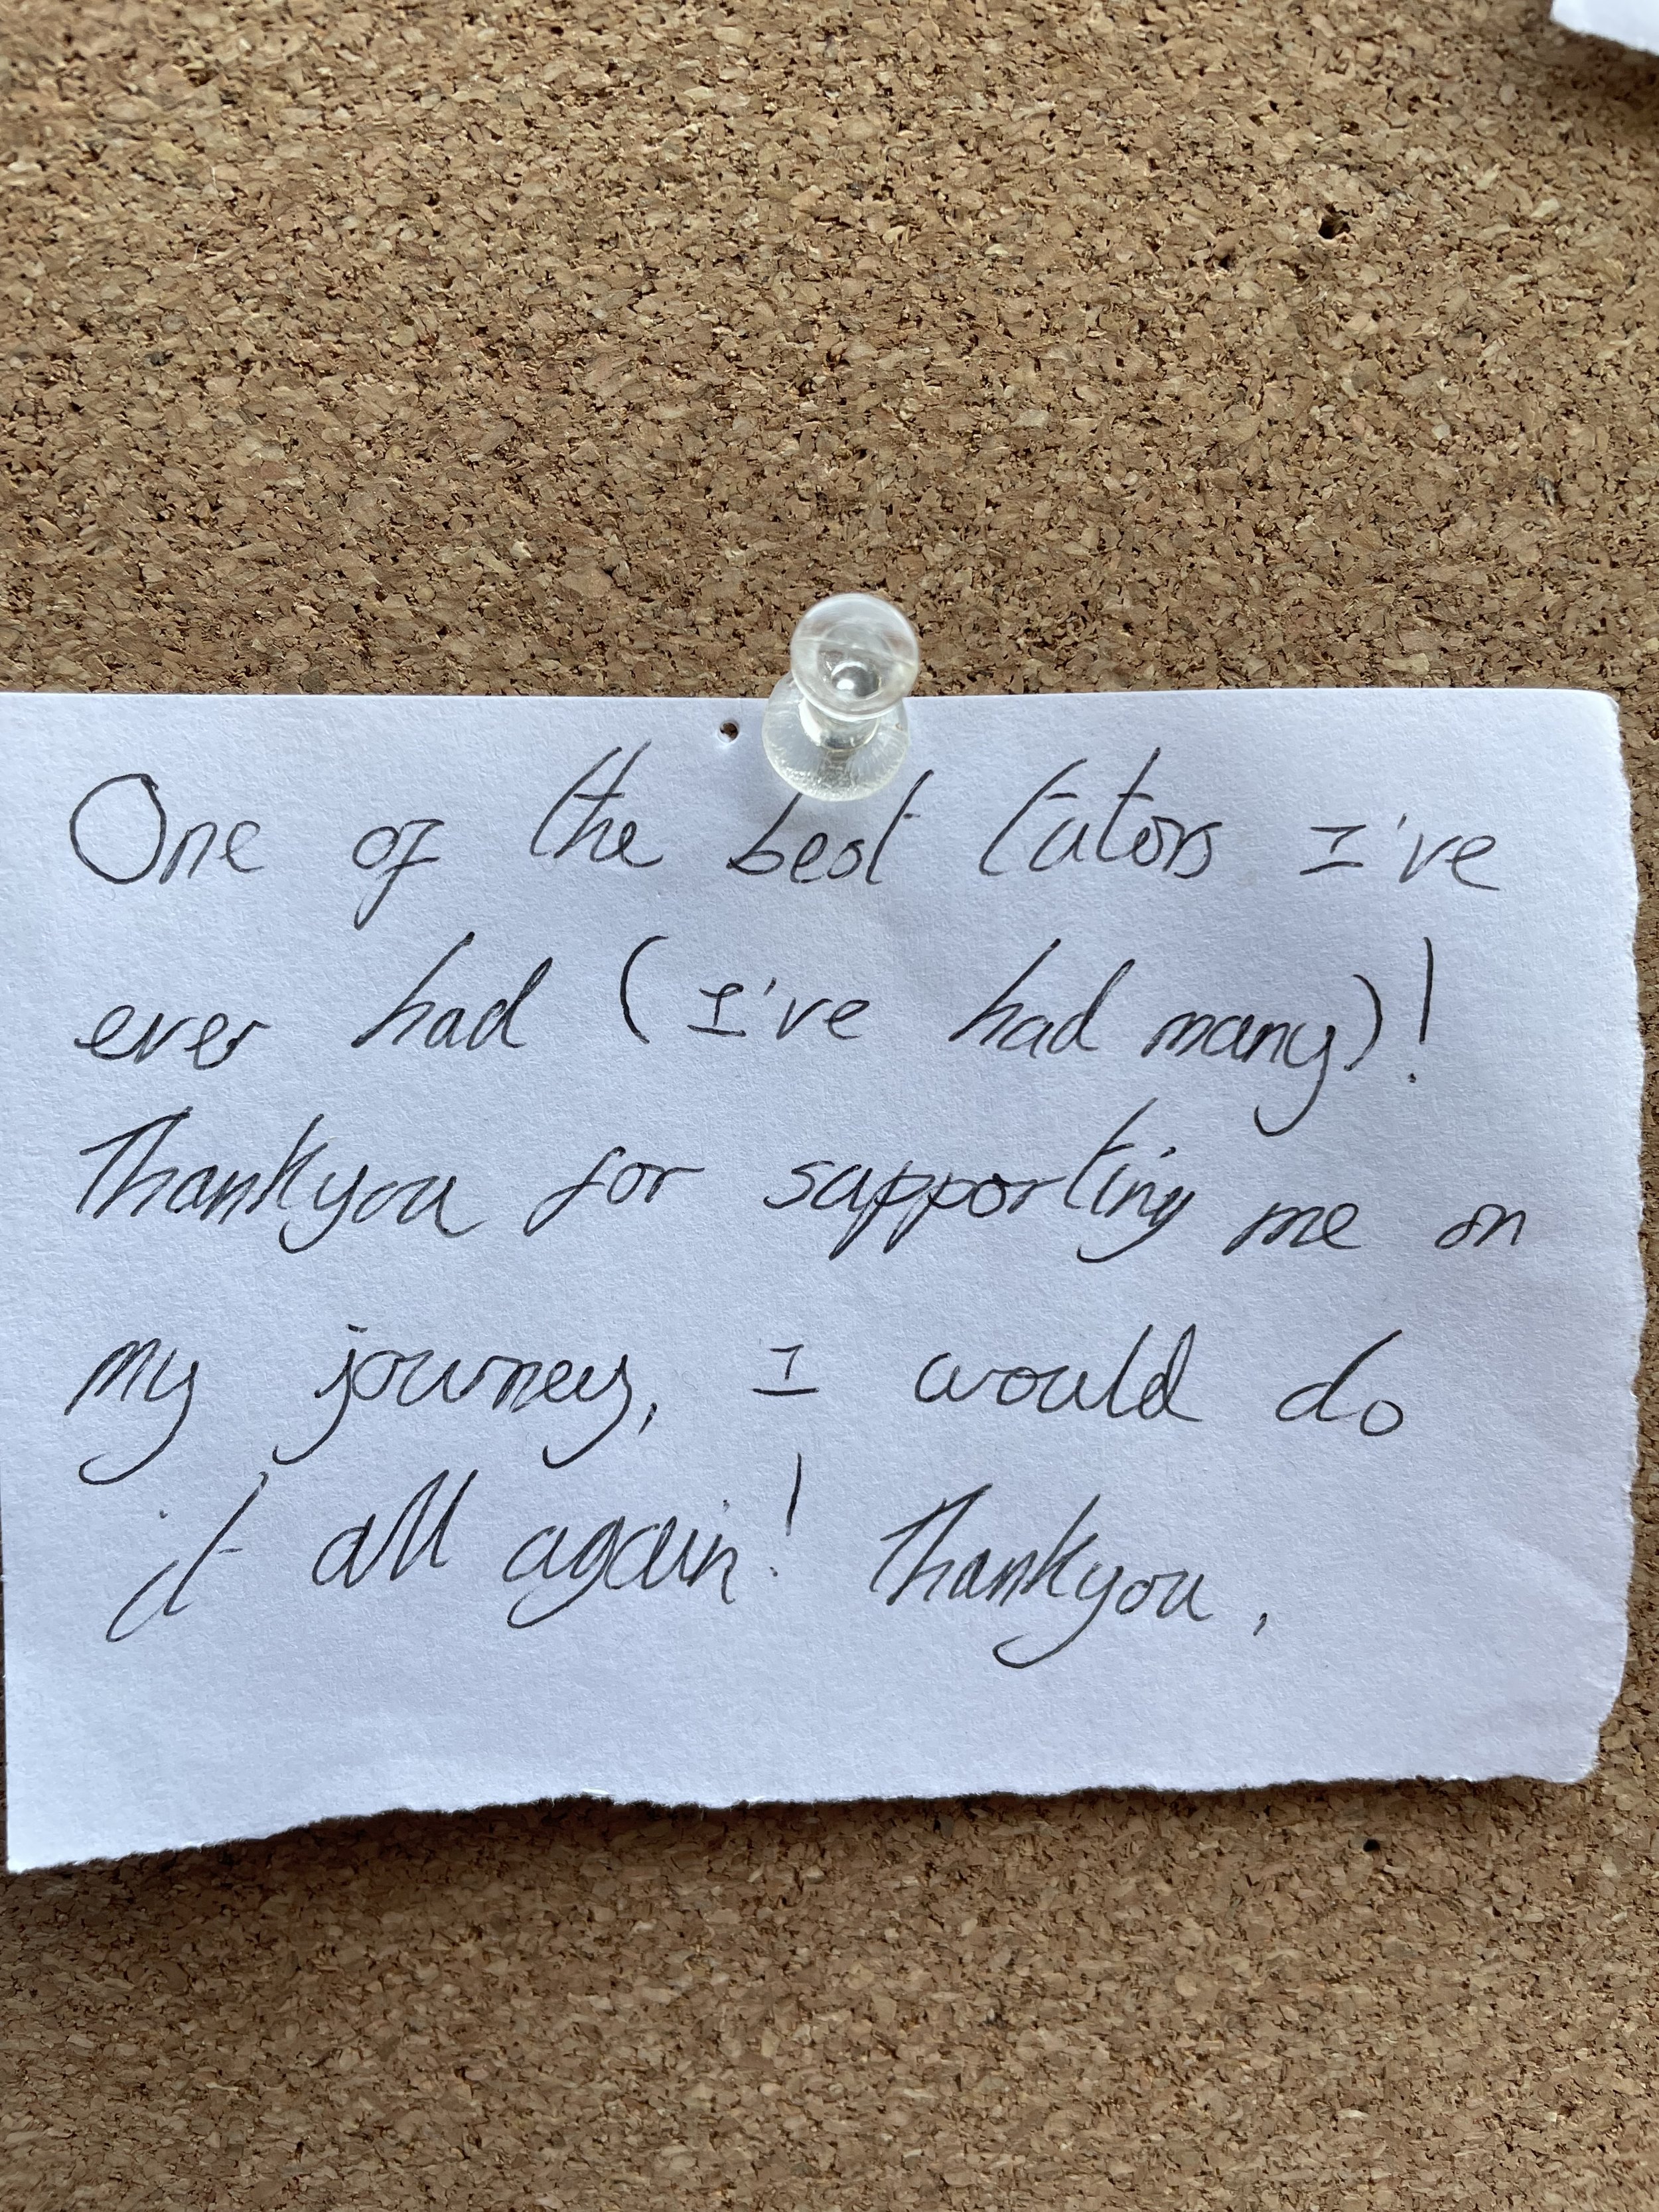 One of the best tutors I've
ever had (I've had many)!
Thankyou for supporting me on
my journey, I would do
it all again! Thankyou.